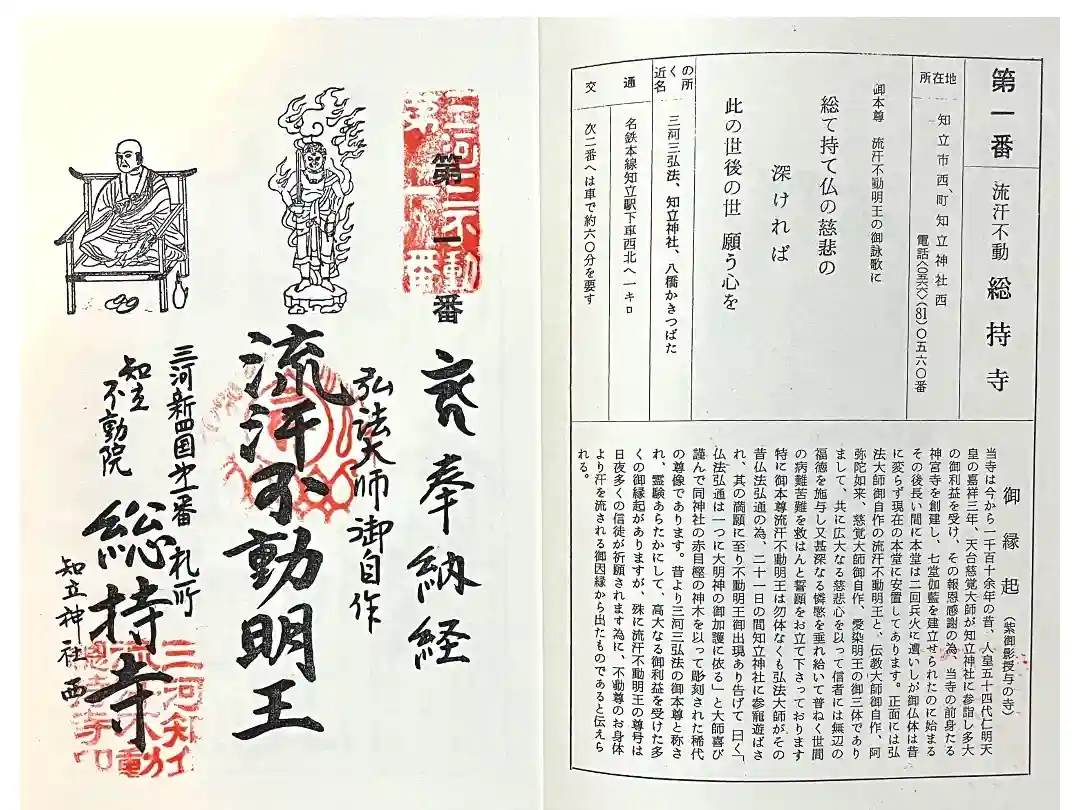 第一番
流汗不動 総持寺
所在地
知立市西町知立神社西
電話〈五六六〉(81)〇五六〇番
御本尊 流汗不動明王の御詠歌に
総て持て仏の慈悲の
深ければ
此の世後の世 願う心を
近くの名所
三河三弘法、知立神社、八橋かきつばた
交通
名鉄本線知立駅下車西北へ一キロ
次二番へは車で約六〇分を要す
御縁起(紫御影授与の寺)
当寺は今から一千百十余年の昔、人皇五十四代仁明天
皇の嘉祥三年、天台慈覚大師が知立神社に参詣し多大
の御利益を受け、その報恩感謝の為、当寺の前身たる
神宮寺を創建し、七堂伽藍を建立せられたのに始まる
その後長い間に本堂は二回兵火に遭いしが御仏体は昔
に変らず現在の本堂に安置してあります。正面には弘
法大師御自作の流汗不動明王と、伝教大師御自作、阿
弥陀如来、慈覚大師御自作、愛染明王の御三体であり
まして、共に広大なる慈悲心を以って信者には無辺の
福徳を施与し又甚深なる憐愍を垂れ給いて普ねく世間
の病難苦難を救はんと誓願をお立て下さっております
特に御本尊流汗不動明王は勿体なくも弘法大師がその
昔仏法弘通の為、二十一日の間知立神社に参籠遊ばさ
れ、其の満願に至り不動明王御出現あり告げて曰く「
仏法弘通は一つに大明神の御加護に依る」と大師喜び
謹んで同神社の赤目樫の神木を以って彫刻された稀代
の尊像であります。昔より三河三弘法の御本尊と称さ
れ、霊験あらたかにして、高大なる御利益を受けた多
くの御縁起がありますが、殊に流汗不動明王の尊号は
日夜多くの信徒が祈願されます為に、不動尊のお身体
より汗を流される御因縁から出たものであると伝えら
れる。
第一番
三河三不動
第一番
奉納経
弘法大師御自作
流汗不動明王
三河新四国第一番札所
知立
不動院
総持寺
知立神社西
三河知立